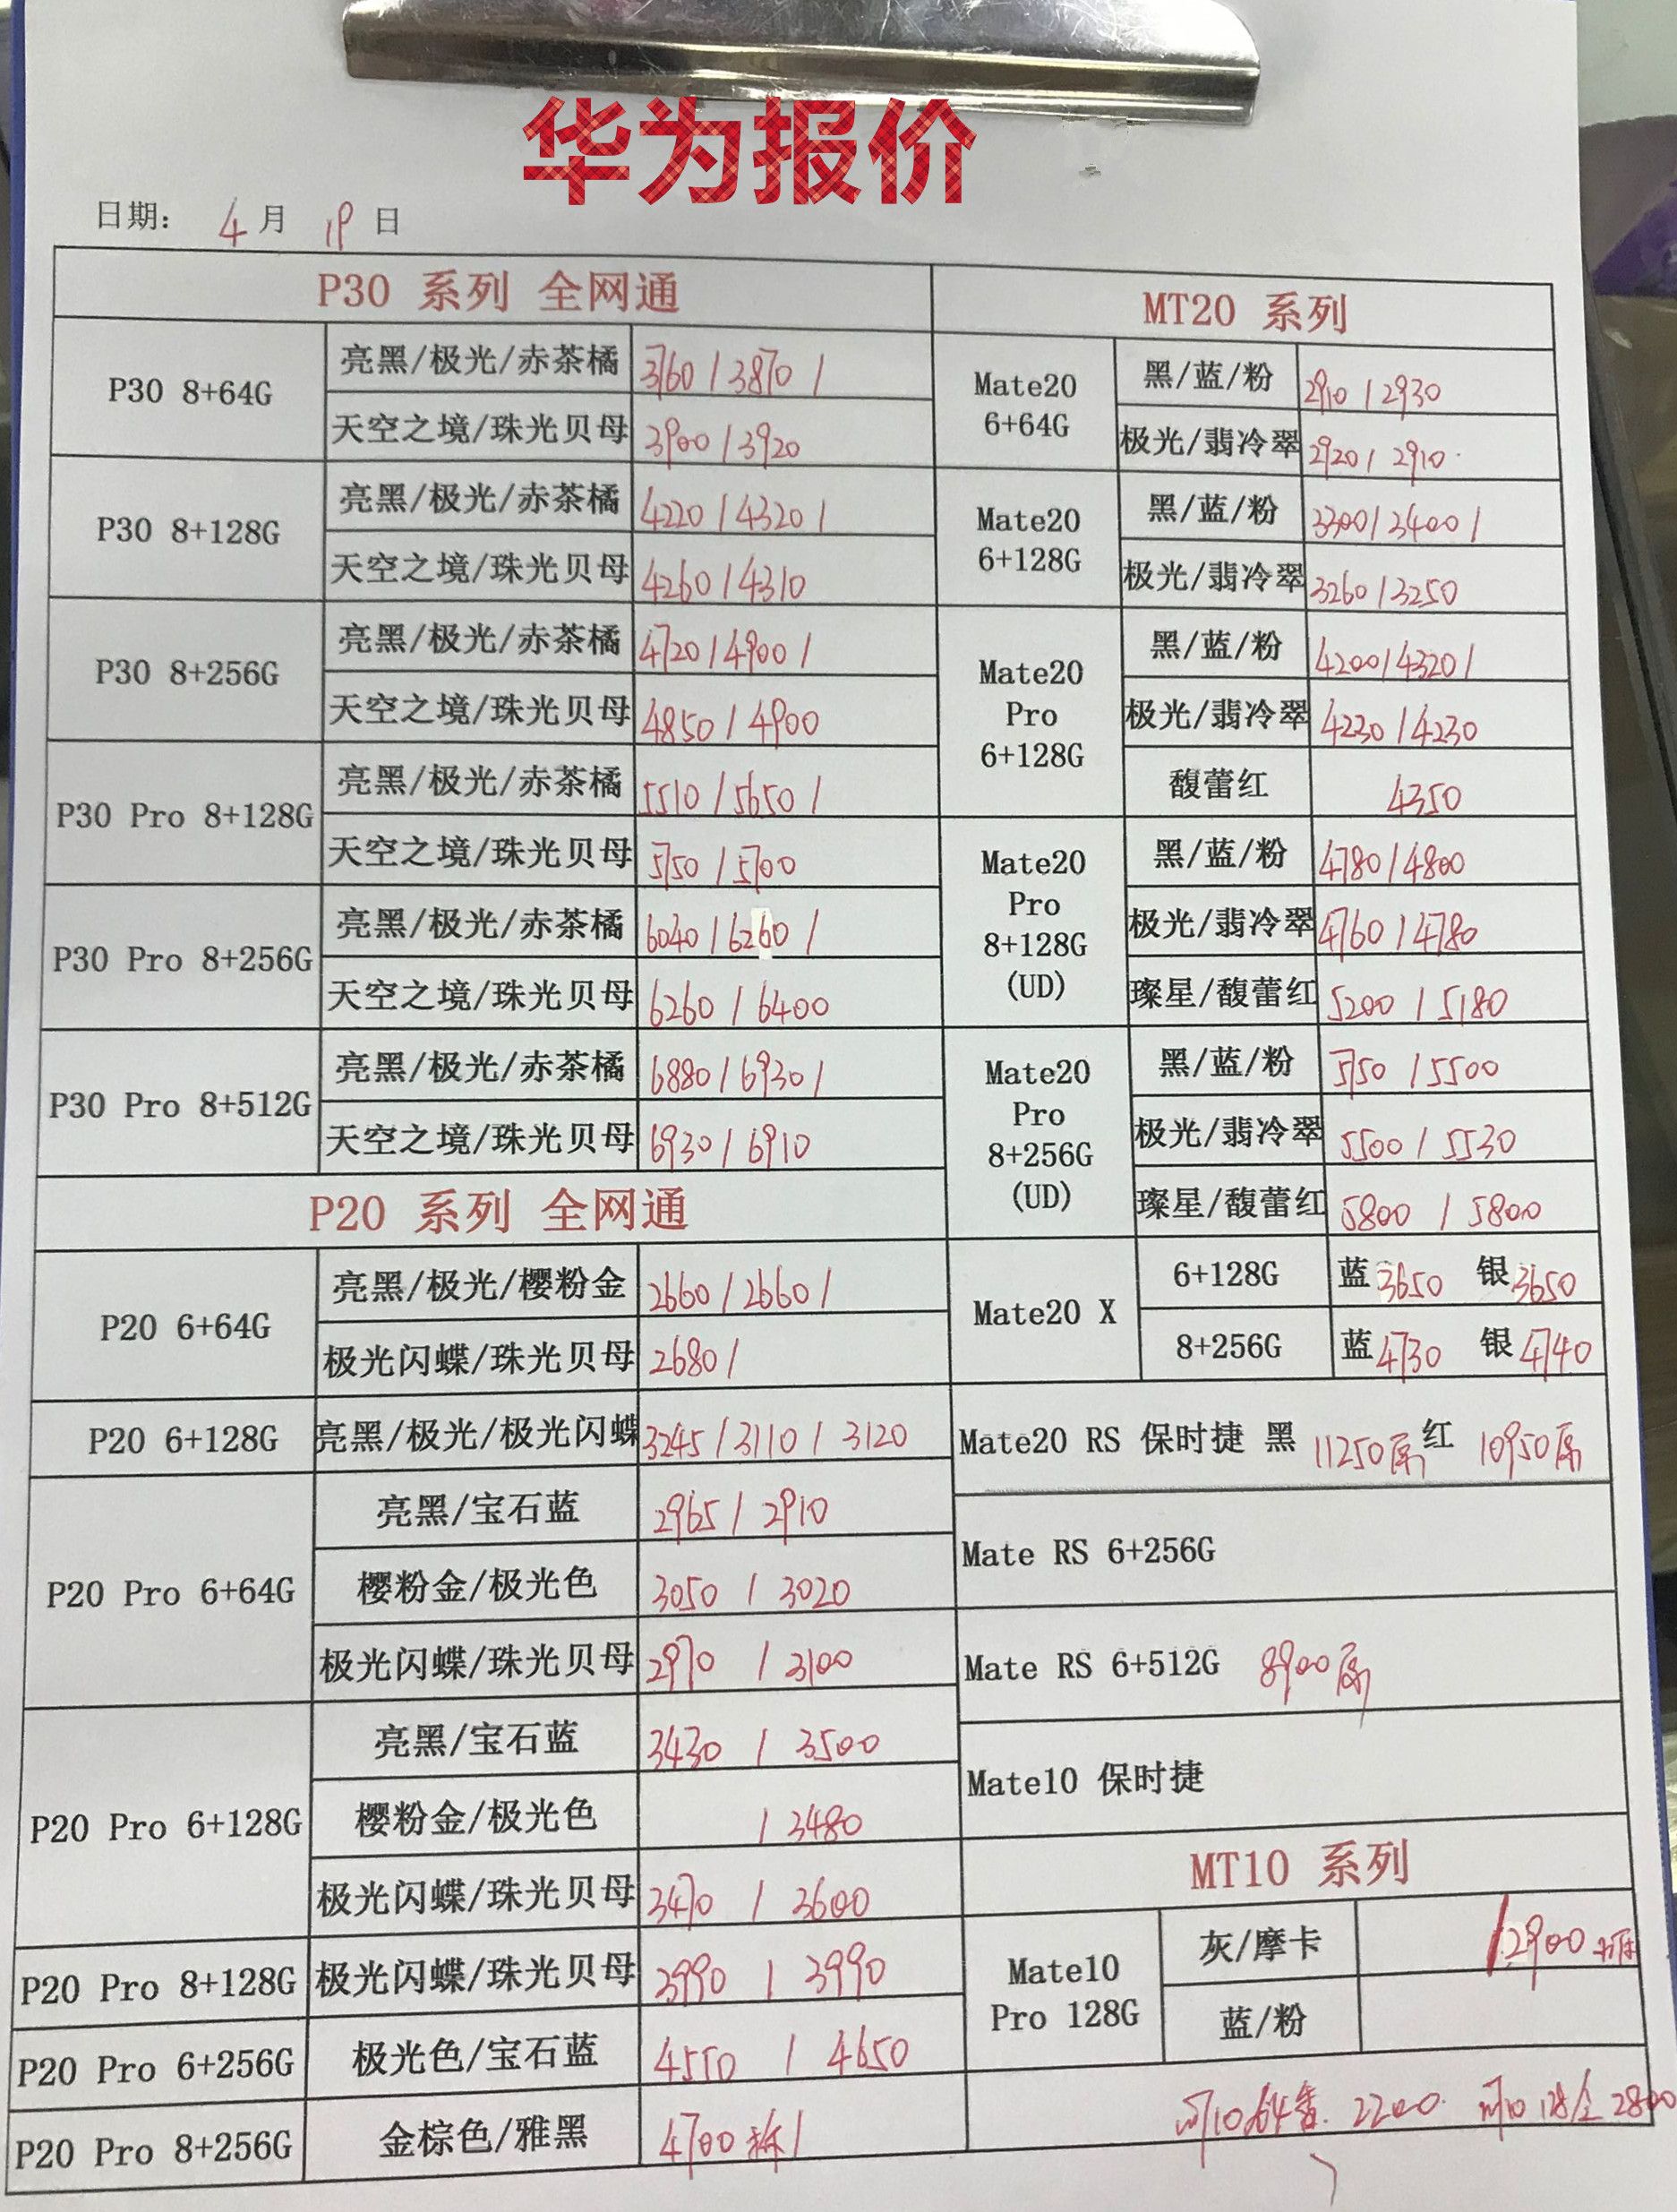 华为报价
日期: 4 月 19 日
P30 系列 全网通
P30 8+64G
亮黑/极光/赤茶橘 3760 / 3870 /
天空之境/珠光贝母 3900 / 3920
P30 8+128G
亮黑/极光/赤茶橘 4220 / 4320 /
天空之境/珠光贝母 4260 / 4310
P30 8+256G
亮黑/极光/赤茶橘 4720 / 4900 /
天空之境/珠光贝母 4850 / 4900
P30 Pro 8+128G
亮黑/极光/赤茶橘 5510 / 5650 /
天空之境/珠光贝母 5750 / 5700
P30 Pro 8+256G
亮黑/极光/赤茶橘 6040 / 6260 /
天空之境/珠光贝母 6260 / 6400
P30 Pro 8+512G
亮黑/极光/赤茶橘 6880 / 6930 /
天空之境/珠光贝母 6930 / 6910
P20 系列 全网通
P20 6+64G
亮黑/极光/樱粉金 2660 / 2660 /
极光闪蝶/珠光贝母 2680 /
P20 6+128G 亮黑/极光/极光闪蝶 3245 / 3110 / 3120
P20 Pro 6+64G
亮黑/宝石蓝 2965 / 2910
樱粉金/极光色 3050 / 3020
极光闪蝶/珠光贝母 2970 / 3100
P20 Pro 6+128G
亮黑/宝石蓝 3430 / 3500
樱粉金/极光色 / 3480
极光闪蝶/珠光贝母 3470 / 3600
P20 Pro 8+128G 极光闪蝶/珠光贝母 3990 / 3990
P20 Pro 6+256G 极光色/宝石蓝 4550 / 4650
P20 Pro 8+256G 金棕色/雅黑 4700 /
MT20 系列
Mate20
6+64G
黑/蓝/粉 2910 / 2930
极光/翡冷翠 2920 / 2910
Mate20
6+128G
黑/蓝/粉 3300 / 3400 /
极光/翡冷翠 3260 / 3250
Mate20
Pro
6+128G
黑/蓝/粉 4200 / 4320 /
极光/翡冷翠 4230 / 4230
馥蕾红 4350
Mate20
Pro
8+128G
(UD)
黑/蓝/粉 4780 / 4800
极光/翡冷翠 4760 / 4780
璨星/馥蕾红 5200 / 5180
Mate20
Pro
8+256G
(UD)
黑/蓝/粉 5750 / 5500
极光/翡冷翠 5500 / 5530
璨星/馥蕾红 5800 / 5800
Mate20 X
6+128G 蓝 3650 银 3650
8+256G 蓝 4730 银 4740
Mate20 RS 保时捷 黑 11250 红 10950
Mate RS 6+256G
Mate RS 6+512G 8900
Mate10 保时捷
MT10 系列
Mate10
Pro 128G
灰/摩卡 / 2900
蓝/粉
2200 2800